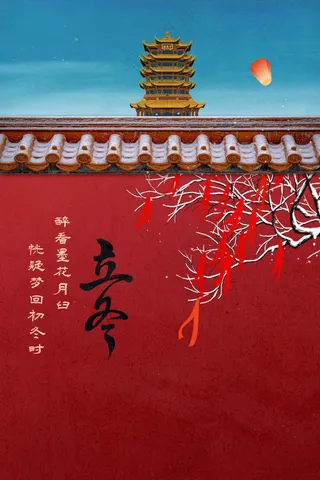 立冬
醉看墨花月白
恍疑梦回初冬时